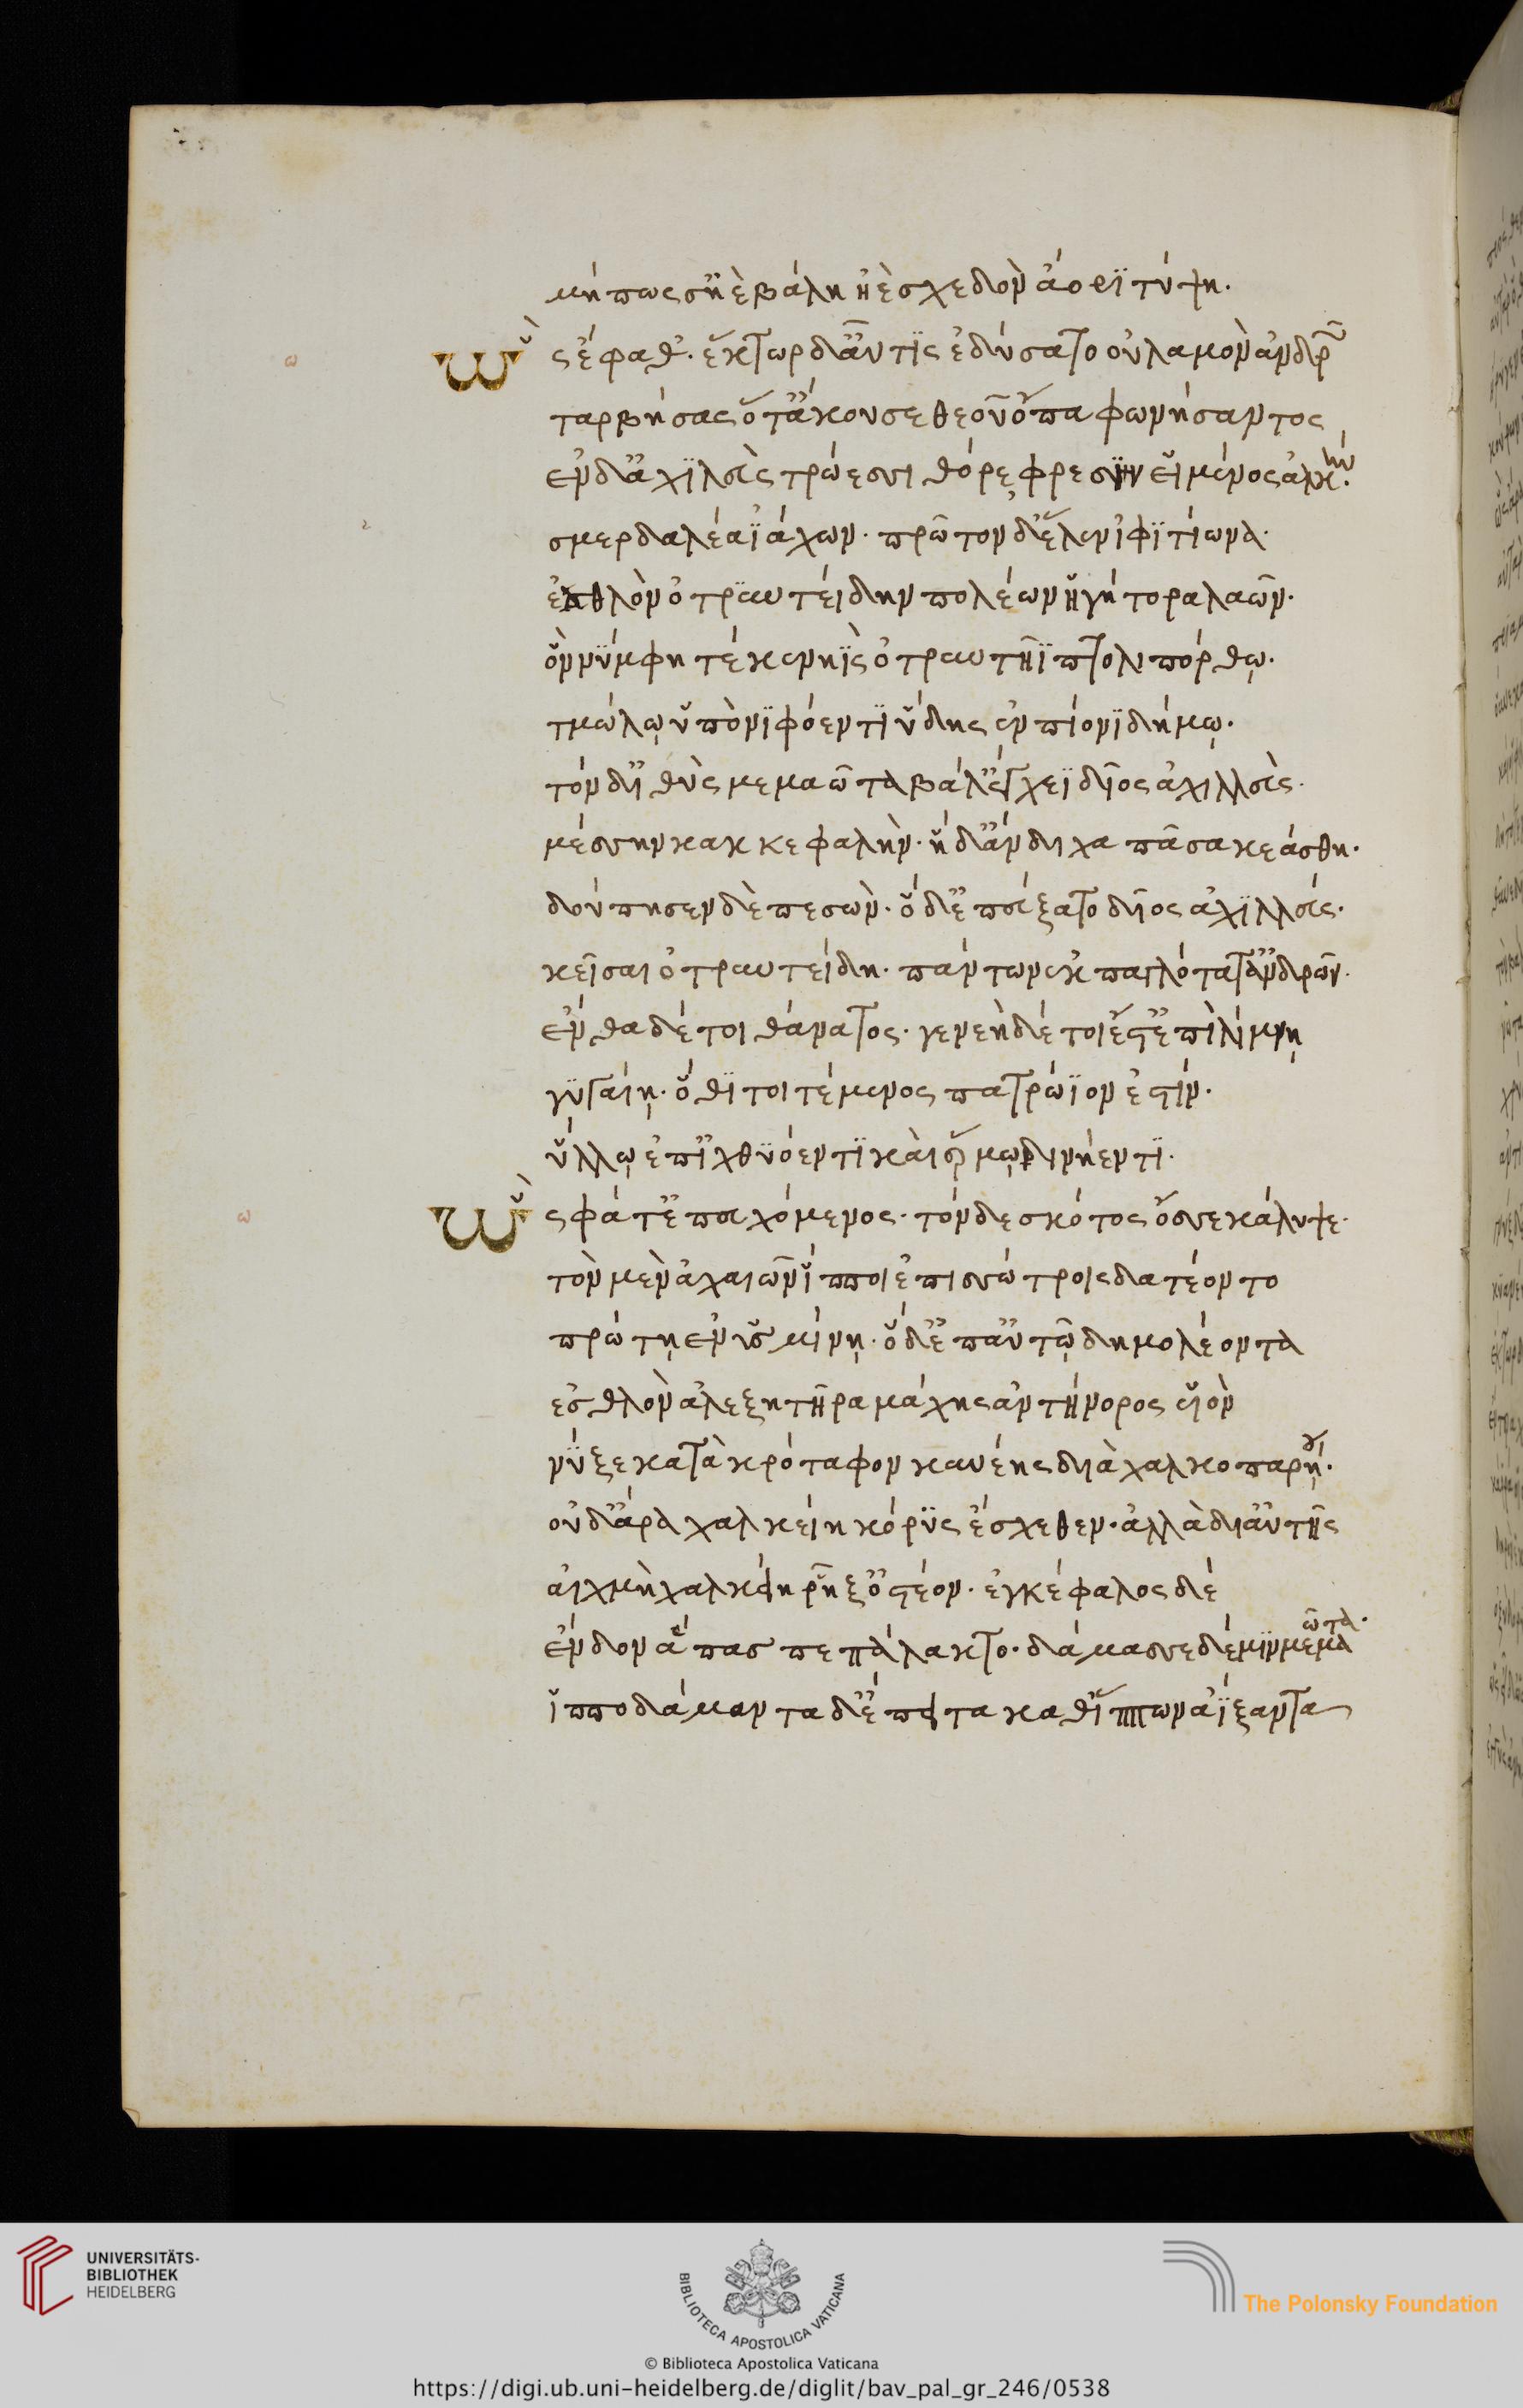 μήπως σ' ἠὲ βάλῃ ἠὲ σχεδὸν ἄορϊ τύψη.
Ὣς ἔφαθ'. ἕκτωρ δ' αὖτϊς ἐδύσατο οὐλαμὸν ἀνδρῶν
ταρβήσας ὅτ' ἄκουσε θεοῦ ὄπα φωνήσαντος
ἐν δ' ἀχϊλεὺς τρώεσσι θόρε, φρεσὶν εἱμένος ἀλκὴν.
σμερδαλέα ἰάχων. πρῶτον δ' ἕλεν ἰφϊτίωνα.
ἐσθλὸν ὀτρυντείδην πολέων ἡγήτορα λαῶν.
ὃν νύμφη τέκε νηῒς ὀτρυντῆϊ πτολιπόρθῳ.
τμώλῳ ὕπο νϊφόεντϊ ὕδης ἐν πίονϊ δήμῳ.
τὸν δ' ἰθὺς μεμαῶτα βάλ' ἔγχεϊ δῖος ἀχιλλεὺς.
μέσσην κακ κεφαλὴν. ἡ δ' ἄνδιχα πᾶσα κεάσθη.
δούπησεν δὲ πεσὼν. ὁ δ' ἐπεύξατο δῖος ἀχϊλλεύς.
κεῖσαι ὀτρυντείδη. πάντων ἐκπαγλότατ' ἀνδρῶν.
ἐνθάδέ τοι θάνατος. γενεὴ δέ τοι ἔστ' ἐπὶ λίμνῃ
γυγαίῃ. ὅθϊ τοι τέμενος πατρώϊον ἐστίν.
ὕλλῳ ἐπ' ἰχθυόεντϊ καὶ ἕρμῳ δινήεντϊ.
Ὣς φάτ' ἐπευχόμενος. τὸν δε σκότος ὄσσε κάλυψε.
τὸν μὲν ἀχαιῶν ἵπποι ἐπισσώτροις δατέοντο
πρώτῃ ἐν ὑσμίνῃ. ὁ δ' ἐπ' αὐτῷ δημολέοντα
ἐσθλὸν ἀλεξητῆρα μάχης ἀντήνορος υἱὸν
νύξε κατὰ κρόταφον κυνέης διὰ χαλκοπαρήου.
οὐδ' ἄρα χαλκείη κόρυς ἔσχεθεν. ἀλλὰ δι' αὐτῆς
αἰχμὴ χαλκείη ῥῆξ' ὀστέον. ἐγκέφαλος δέ
ἔνδον ἅπας πεπάλακτο. δάμασσε δέ μϊν μεμαῶτα.
ἱπποδάμαντα δ' ἔπειτα καθ' ἵππων ἀΐξαντα
UNIVERSITÄTS-
BIBLIOTHEK
HEIDELBERG
BIBLIOTECA APOSTOLICA VATICANA
The Polonsky Foundation
© Biblioteca Apostolica Vaticana
https://digi.ub.uni-heidelberg.de/diglit/bav_pal_gr_246/0538